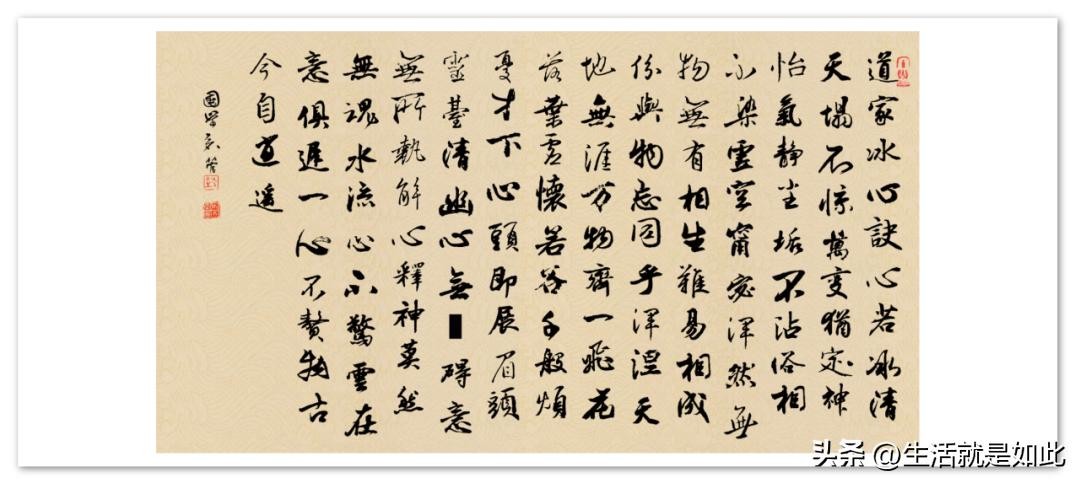 道家冰心訣心若冰清
天塌不惊萬變猶定神
怡氣静尘垢不沾俗相
不染虛空甯宓渾然無
物無有相生難易相成
份與物忘同乎渾涅天
地無涯万物齊一飛花
落葉虛懷若谷千般煩
憂才下心頭即展眉頭
靈臺清幽心無碍意
無所執解心釋神莫然
無魂水流心不驚雲在
意俱遲一心不贅物古
今自逍遥
國學
头条 @生活就是如此